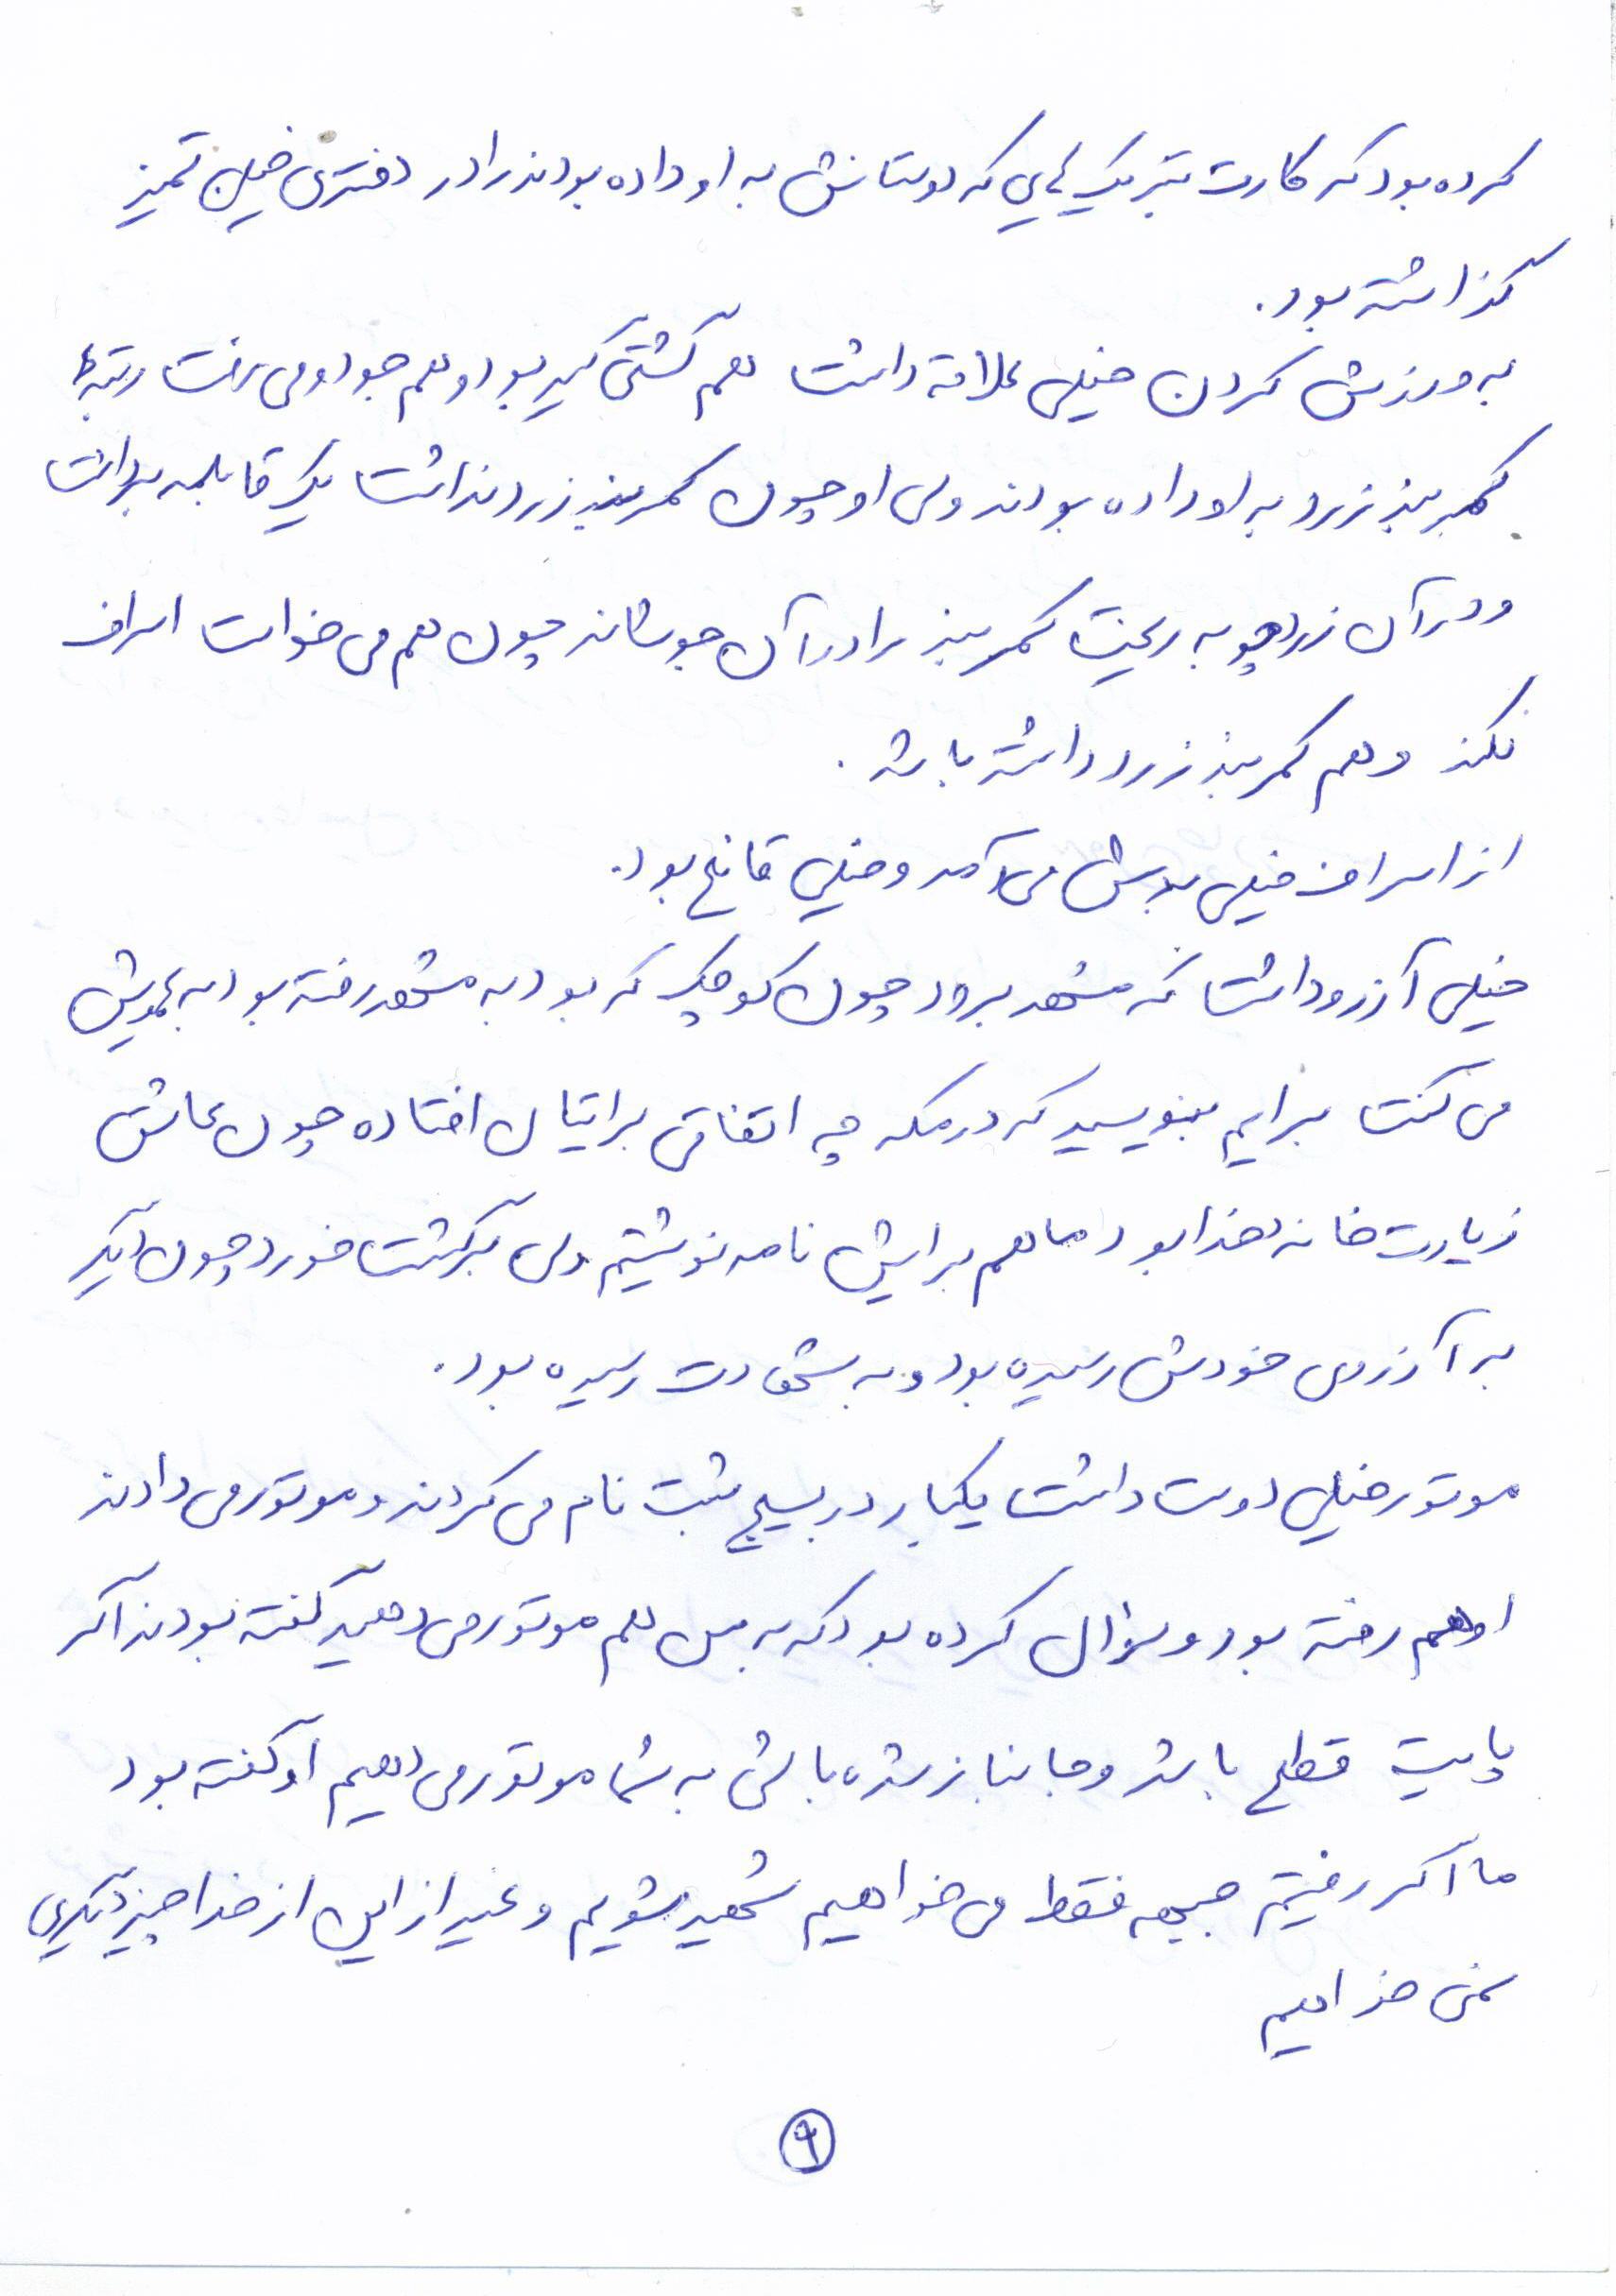 کرده بود که کارت تبریک هایی که دوستانش به او داده بودند را در دفتری خیلی تمیز
گذاشته بود.
به ورزش کردن خیلی علاقه داشت هم کشتی گیر بود و هم جودو می رفت رتبه
کمربند زرد به او داده بودند ولی او چون کمربند زرد نداشت یک قابلمه برداشت
و در آن زردچوبه ریخت کمربند را در آن جوشاند چون هم می خواست اسراف
نکند و هم کمربند زرد داشته باشد.
از اسراف خیلی بدش می آمد و خیلی قانع بود.
خیلی آرزو داشت که مشهد برود چون کوچک که بود به مشهد رفته بود به عمویش
می گفت برایم بنویسید که در مکه چه اتفاقی برایتان افتاده چون عاشق
زیارت خانه خدا بود ما هم برایش نامه نوشتیم ولی برگشت خورد چون دیگر
به آرزوی خودش رسیده بود و به شهادت رسیده بود.
موتور خیلی دوست داشت یکبار در بسیج ثبت نام می کردند و موتور می دادند
او هم رفته بود و سؤال کرده بود که به من هم موتور می دهید گفته بودند اگر
پایت قطع باشد و جانباز شده باشی به شما موتور می دهیم او گفته بود
ما اگر رفتیم جبهه فقط می خواهیم شهید شویم و غیر از این از خدا چیز دیگری
نمی خواهیم
۹